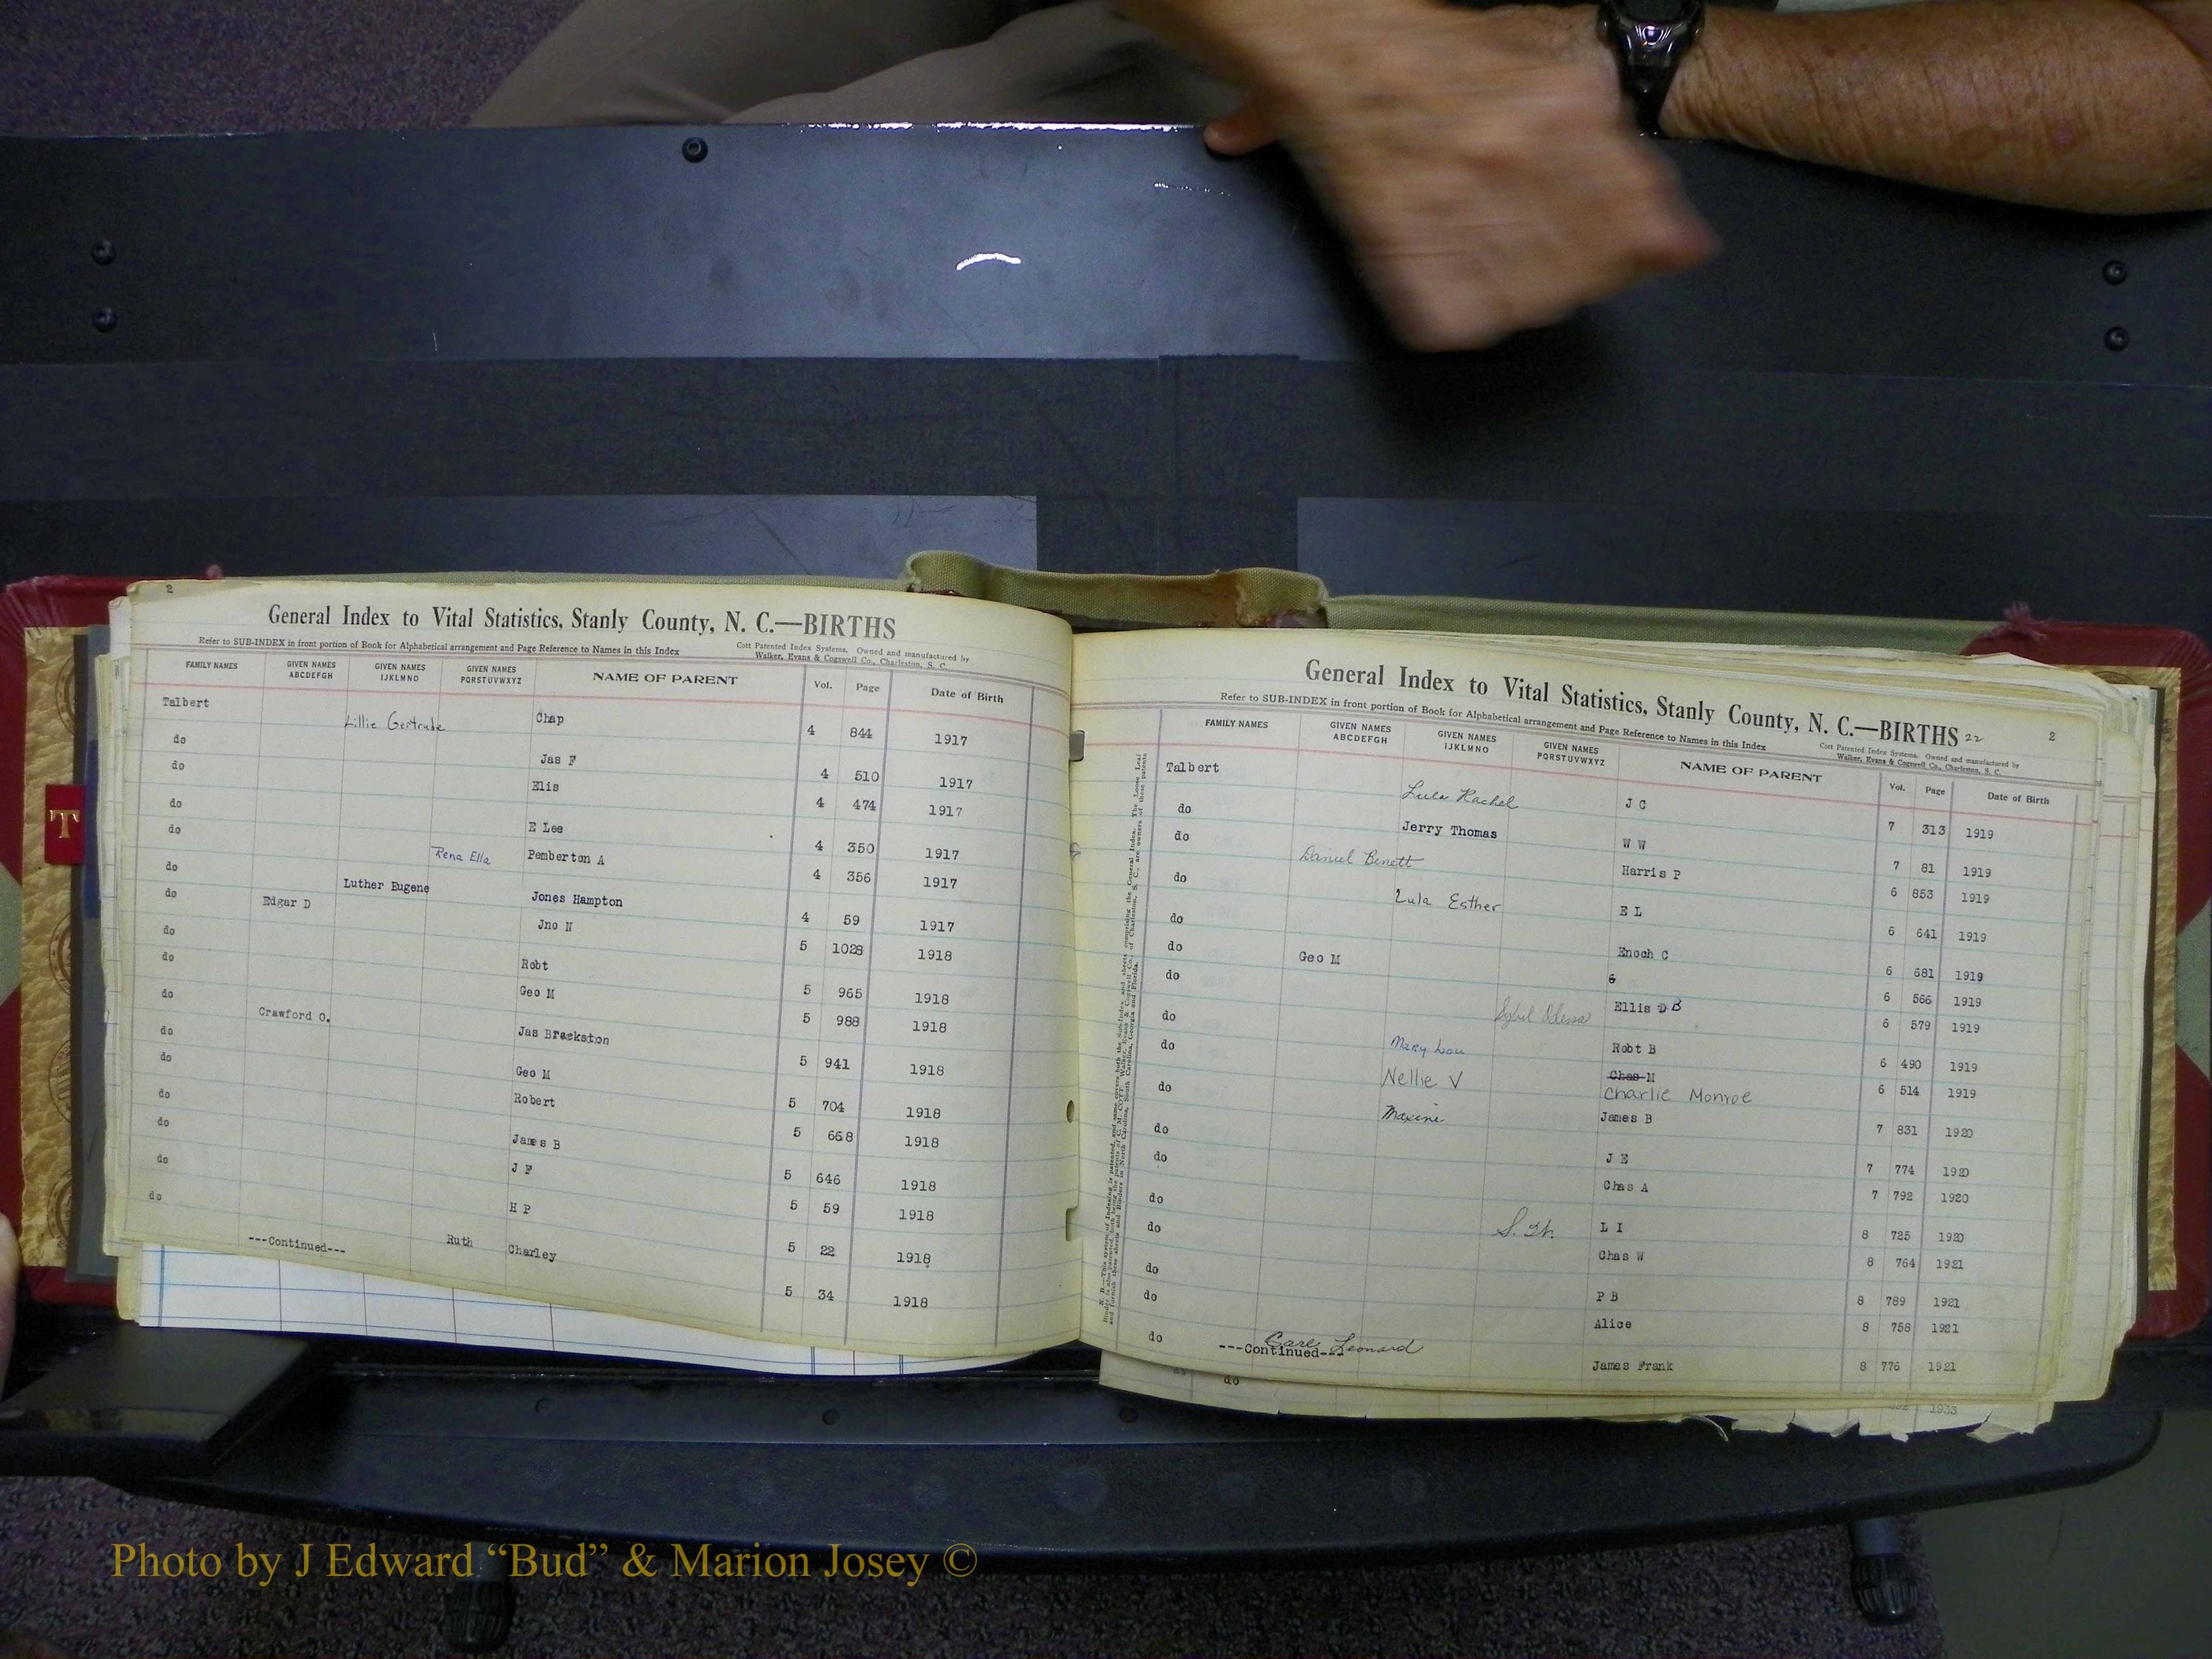 2
General Index to Vital Statistics, Stanly County, N. C.—BIRTHS
Refer to SUB-INDEX in front portion of Book for Alphabetical arrangement and Page Reference to Names in this Index
Cott Patented Index Systems. Owned and manufactured by
Walker, Evans & Cogswell Co., Charleston, S. C.
FAMILY NAMES GIVEN NAMES ABCDEFGH GIVEN NAMES IJKLMNO GIVEN NAMES PQRSTUVWXYZ NAME OF PARENT Vol. Page Date of Birth
Talbert Lillie Gertrude Chap 4 844 1917
do Jas F 4 510 1917
do Elis 4 474 1917
do E Lee 4 350 1917
do Rena Ella Pemberton A 4 356 1917
do Luther Eugene Jones Hampton 4 59 1917
do Edgar D Jno N 5 1028 1918
do Robt 5 965 1918
do Geo M 5 988 1918
do Crawford O. Jas Brackston 5 941 1918
do Geo M 5 704 1918
do Robert 5 668 1918
do James B 5 646 1918
do J F 5 59 1918
do H P 5 22 1918
do Ruth Charley 5 34 1918
---Continued---
T
General Index to Vital Statistics, Stanly County, N. C.—BIRTHS 22 2
Refer to SUB-INDEX in front portion of Book for Alphabetical arrangement and Page Reference to Names in this Index
Cott Patented Index Systems. Owned and manufactured by
Walker, Evans & Cogswell Co., Charleston, S. C.
FAMILY NAMES GIVEN NAMES ABCDEFGH GIVEN NAMES IJKLMNO GIVEN NAMES PQRSTUVWXYZ NAME OF PARENT Vol. Page Date of Birth
Talbert Lula Rachel J C 7 313 1919
do Jerry Thomas W W 7 81 1919
do Daniel Benett Harris P 6 853 1919
do Lula Esther E L 6 641 1919
do Enoch C 6 681 1919
do Geo M 6 6 566 1919
do Ellis D B 6 579 1919
do Sybil Robt B 6 490 1919
do Mary Lou Chas M 6 514 1919
Nellie V Charlie Monroe
do Maxine James B 7 831 1920
do J E 7 774 1920
do Chas A 7 792 1920
do L I 8 725 1920
do Chas W 8 764 1921
do P B 8 789 1921
do Alice 8 758 1921
do Carl Leonard James Frank 8 776 1921
---Continued---
do
1933
Photo by J Edward “Bud” & Marion Josey ©